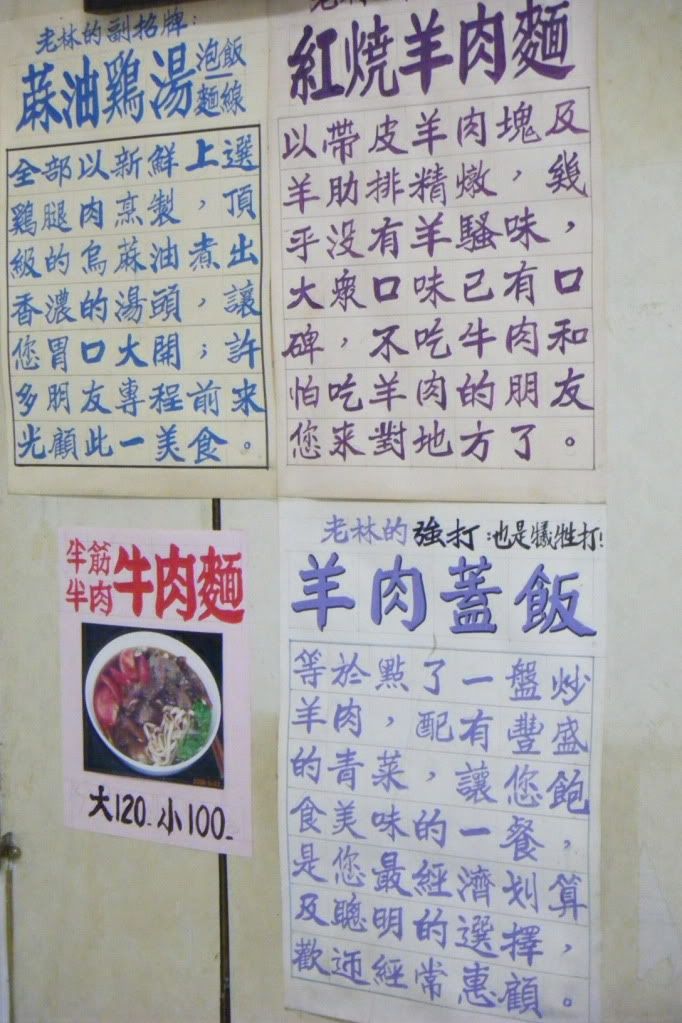 老林的副招牌：
蔴油鷄湯 泡飯
麵線
全部以新鮮上選
鷄腿肉烹製，頂
級的烏蔴油煮出
香濃的湯頭，讓
您胃口大開；許
多朋友專程前來
光顧此一美食。
紅燒羊肉麵
以帶皮羊肉塊及
羊助排精燉，幾
乎没有羊騷味，
大衆口味已有口
碑，不吃牛肉和
怕吃羊肉的朋友
您來對地方了。
半筋
半肉 牛肉麵
大120- 小100-
老林的強打：也是犧牲打！
羊肉蓋飯
等於點了一盤炒
羊肉，配有豐盛
的青菜，讓您飽
食美味的一餐，
是您最經濟划算
及聰明的選擇，
歡迊經常惠顧。